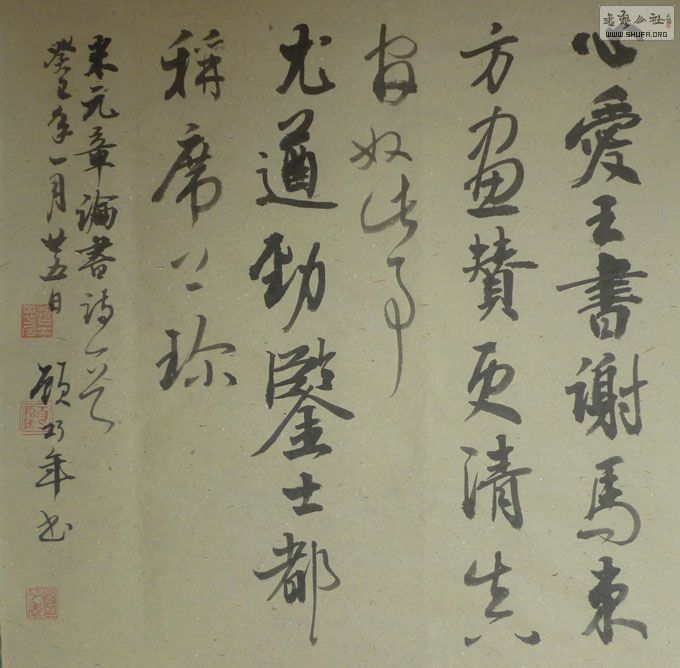 心愛王書謝馬東
方畫賛更清真
官奴此事
尤遒勁鑒士都
稱席上珍
米元章論書詩一首
癸巳年一月廿五日 顧巧年书
書藝公社
WWW.SHUFA.ORG